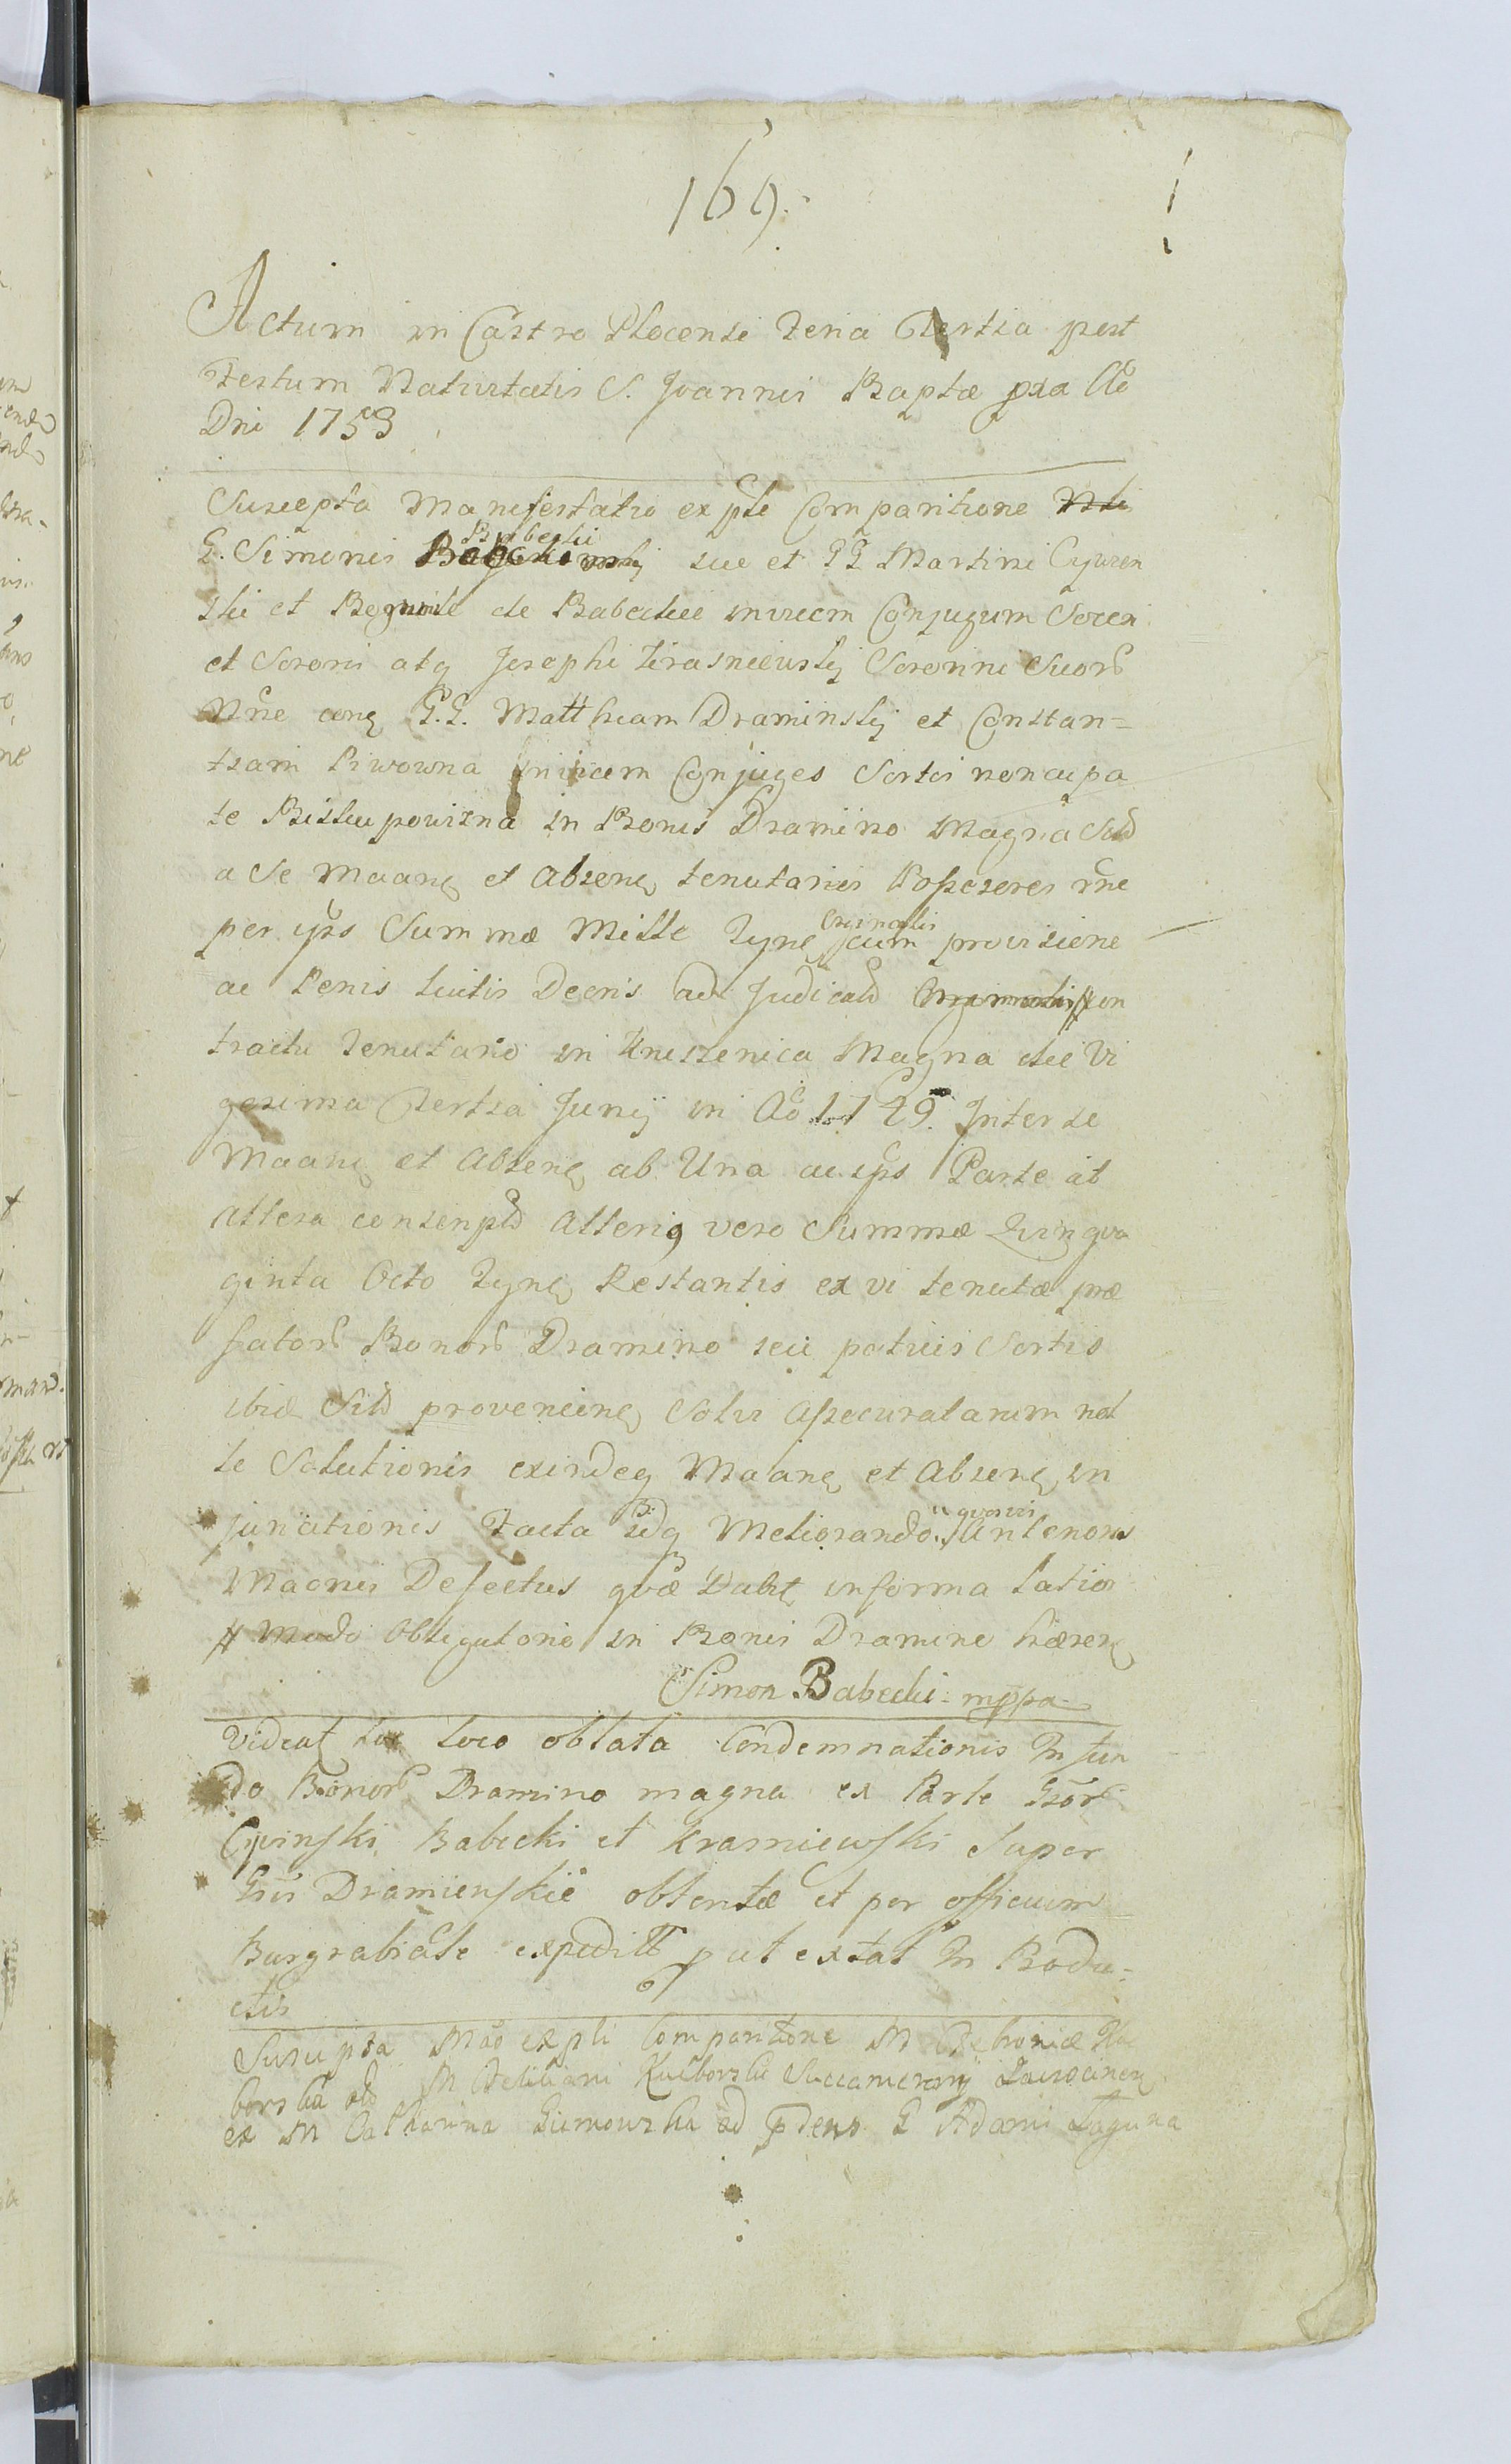 169.
Actum in Castro Plocensi Feria Tertia post
Festum Nativitatis S. Joannis Baptæ pxa Ao
Dni 1753
Suscepta Manifestatio ex pte Comparitione
G. Simonis Babecki sue et GG Martini Cywin
ski et Reginæ de Babeckie invicem Conjugum Soceri
et Sororis atq Josephi Krasniewskij Sororini Suor
Nne conq G.G. Mattheam Draminskij et Constan=
tiam Piwowna invicem Conjuges Sortis noncupa
te Biskupowizna in Bonis Dramino Magna Sit
a Se Maanq et Absenq tenutariis Possesores rne
per ipsos Summæ Mille Tynf Originalis cum provisione
ac Penis luitis Decris ad Judicat Con
tractu Tenutario in Kniszenica Magna die Vi
gesima Tertia Junij in Ao 1749. Inter se
Maanq et Absenq ab Una ac ipsos Parte ab
Altera conscripto Alterius vero Summæ Quinqua
ginta Octo Tynf Restantis ex vi tenutæ præ
fator Bonor Dramino seu potius Sortis
ibid Sit provenienq Solvi Assecuratarum nol
le Solutionis exindeq Maanq et Absenq in
juriationis Facta idq Meliorando Anterioris
Maonis Defectus quæ Dabit in forma latior
Modo Obligatorio in Bonis Dramino hæren
Simon Babecki mppa
Videat hoc loco oblata Condemnationis In fun
do Bonor Dramino magna ex Parte Gsor
Cywinski Babecki et Krasniewski super
Gsis Dramienskie obtentæ et per officium
Burgrabiale expedit p ut extat In Bodu=
ctis
Suscepta Mao ex pte Comparitione M
borska M Feliciani Kucborski Succamerarij Zawscinen
ex M Catharina Gumowska ad G Adami Laguna